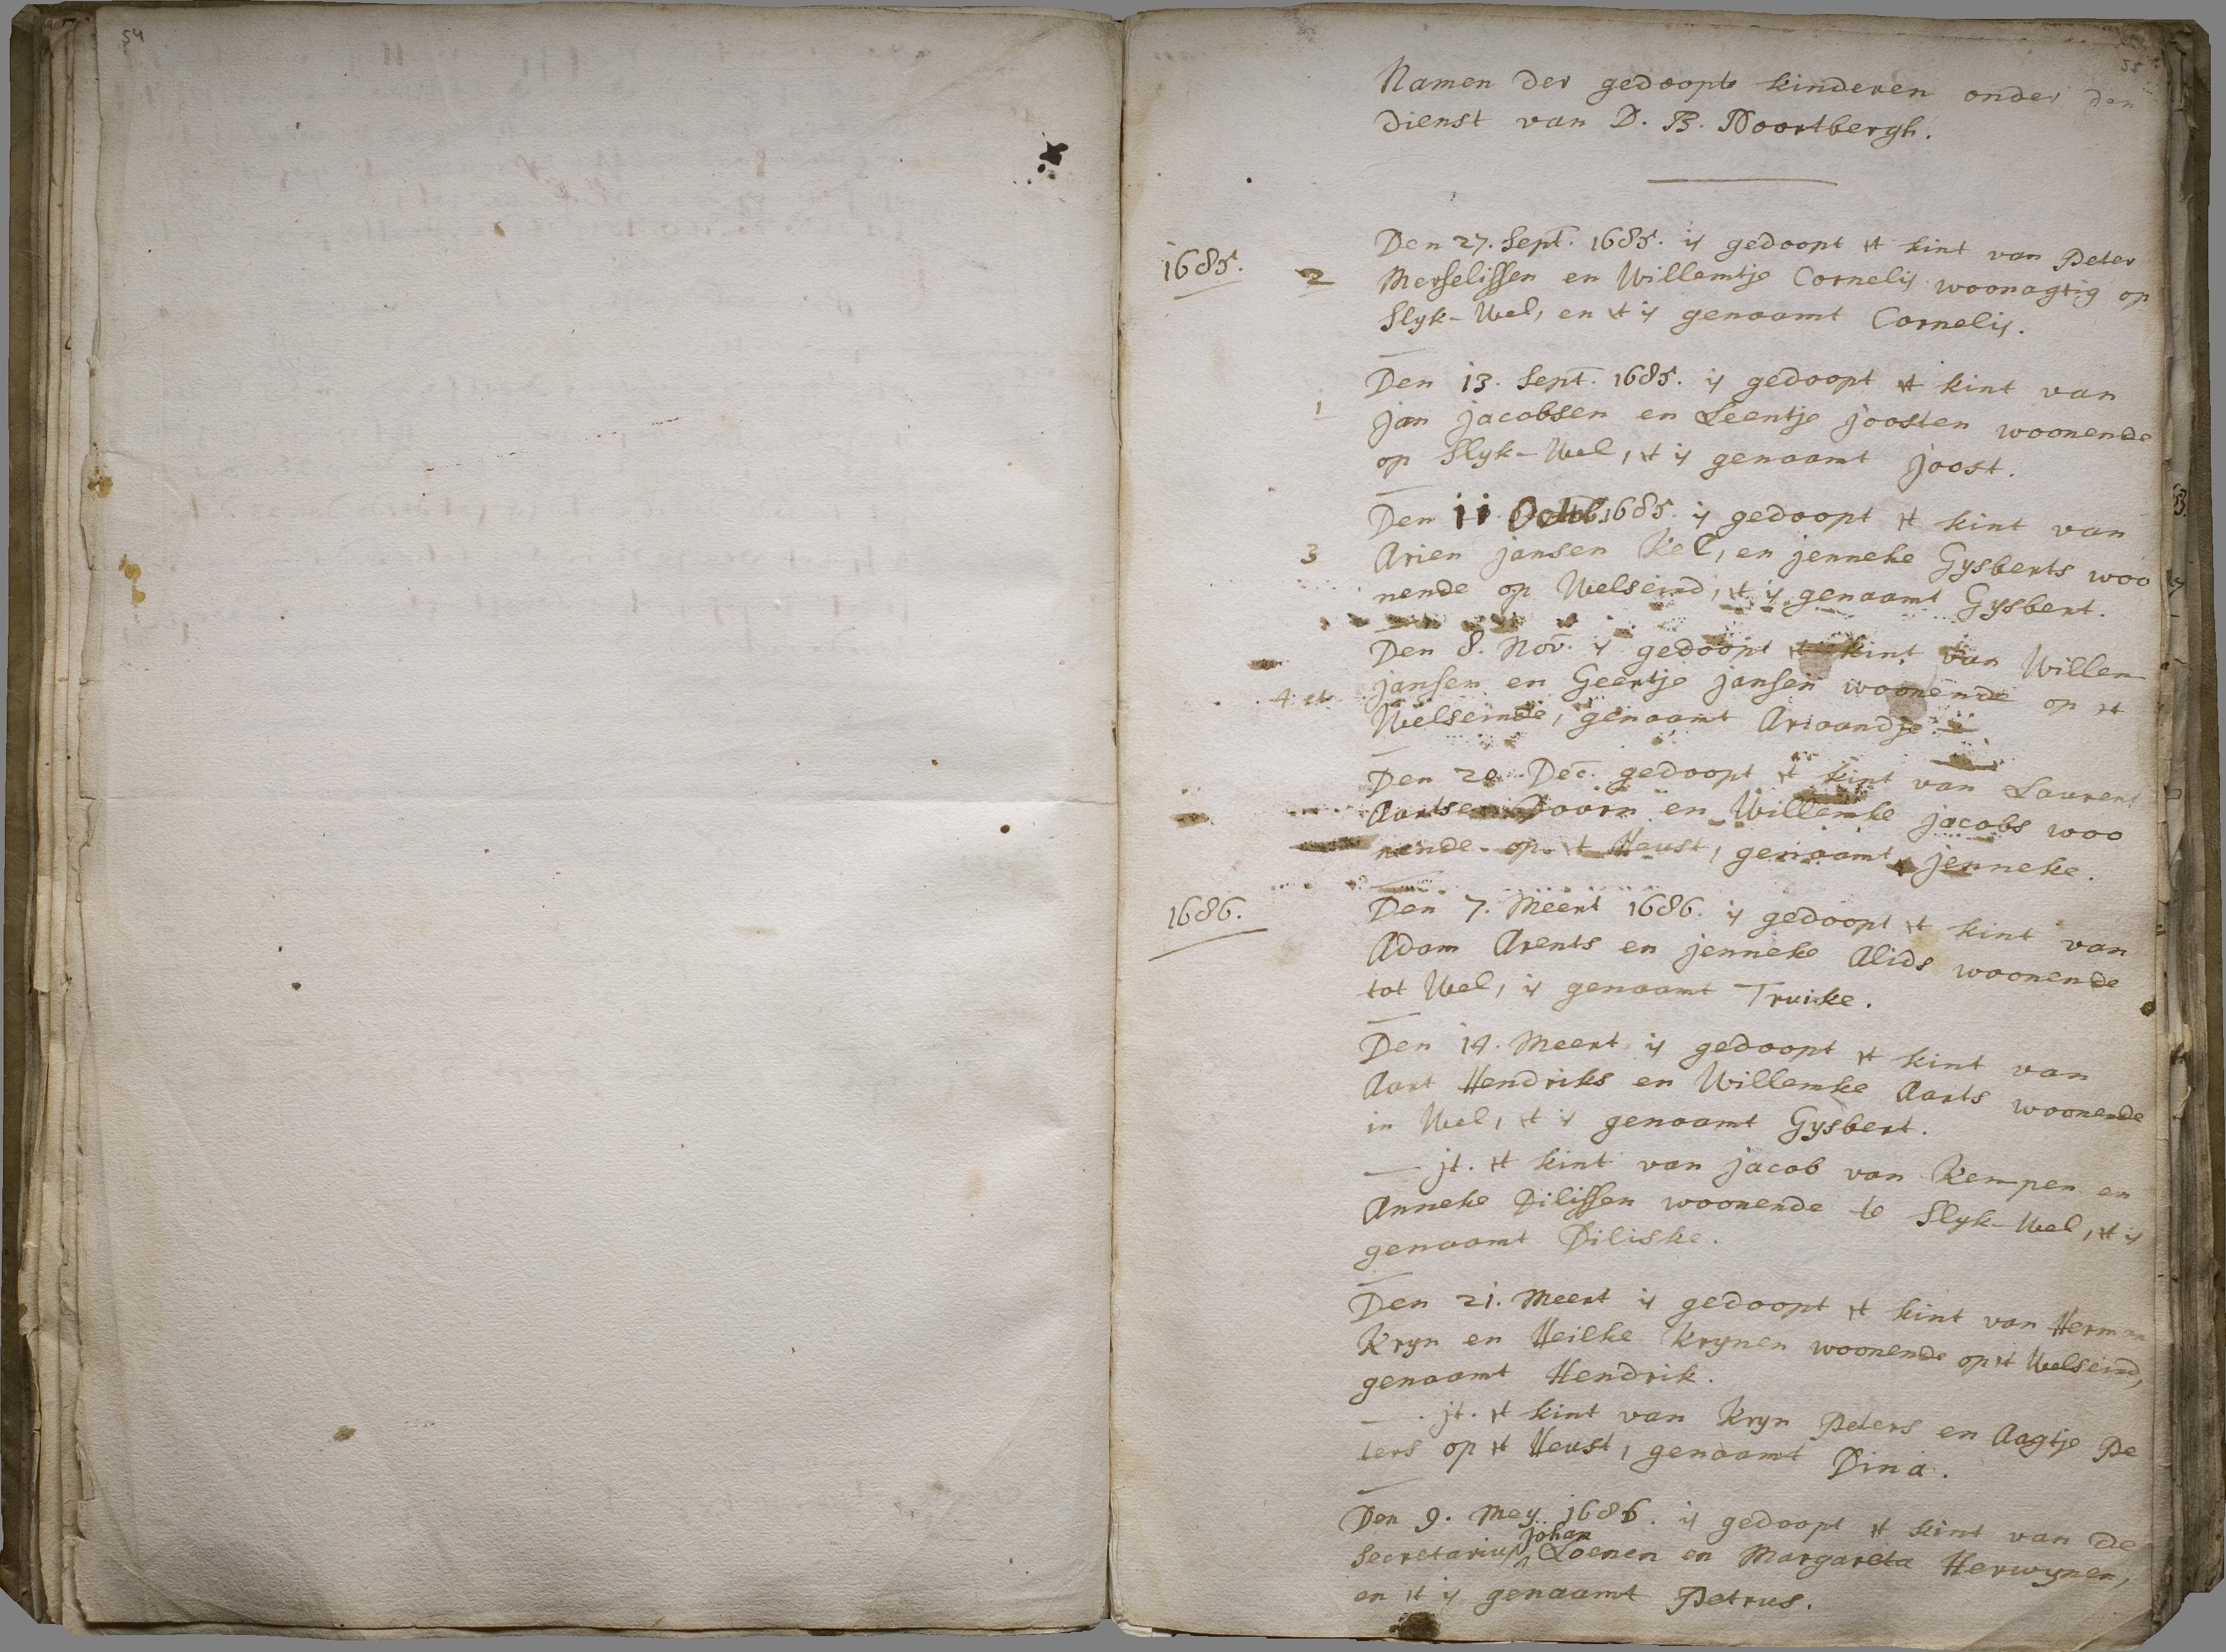 54
55
Namen der gedoopte kinderen onder den
dienst van D. B. Noortbergh.
1685.
Den 27. Sept. 1685. is gedoopt 't kint van Peter
2 Merselissen en Willemtje Cornelis woonagtig op
Slyk-Wel, en 't is genaamt Cornelis.
Den 13. Sept. 1685. is gedoopt 't kint van
1 Jan Jacobsen en Leentje Joosten woonende
op Slyk-Wel, 't is genaamt Joost.
Den 11 Octob. 1685. is gedoopt 't kint van
3 Arien Jansen Kel, en Jenneke Gysberts woo
nende op Welseind, 't is genaamt Gysbert.
Den 8. Nov. is gedoopt 't kint van Willem
4 Jansen en Geertje Jansen woonende op 't
Welseinde, genaamt Ariaandje.
Den 20 Dec. gedoopt 't kint van Laurens
Aartsen Doorn en Willemke Jacobs woo
nende op 't Heust, genaamt Jenneke.
1686.
Den 7. Meert 1686. is gedoopt 't kint van
Adam Arents en Jenneke Alids woonende
tot Wel, is genaamt Truike.
Den 14. Meert is gedoopt 't kint van
Aart Hendriks en Willemke Aarts woonende
in Wel, 't is genaamt Gysbert.
— jt. 't kint van Jacob van Kempen en
Anneke Dilissen woonende te Slyk-Wel, 't is
genaamt Diliske.
Den 21. Meert is gedoopt 't kint van Herman
Kryn en Heilke Krynen woonende op 't Welseind,
genaamt Hendrik.
— jt. 't kint van Kryn Peters en Aagtje Pe
ters op 't Heust, genaamt Dina.
Den 9. Mey 1686. is gedoopt 't kint van de
Johan
Secretarius Loenen en Margareta Herwynen,
en 't is genaamt Petrus.